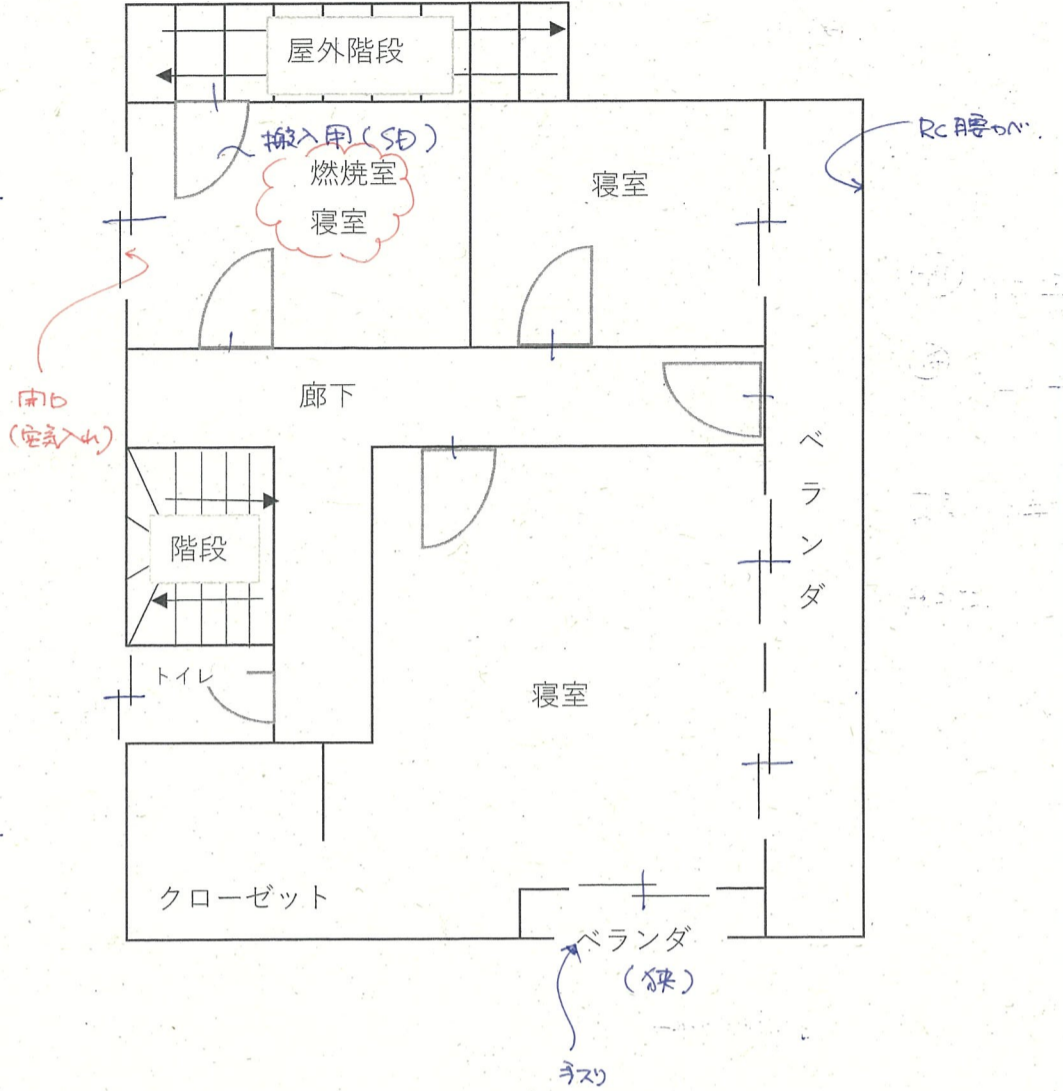 屋外階段
搬入用(SD)
燃焼室
寝室
寝室
RC腰カベ
開口
(空気入れ)
廊下
ベランダ
階段
トイレ
寝室
クローゼット
ベランダ
(狭)
手スリ